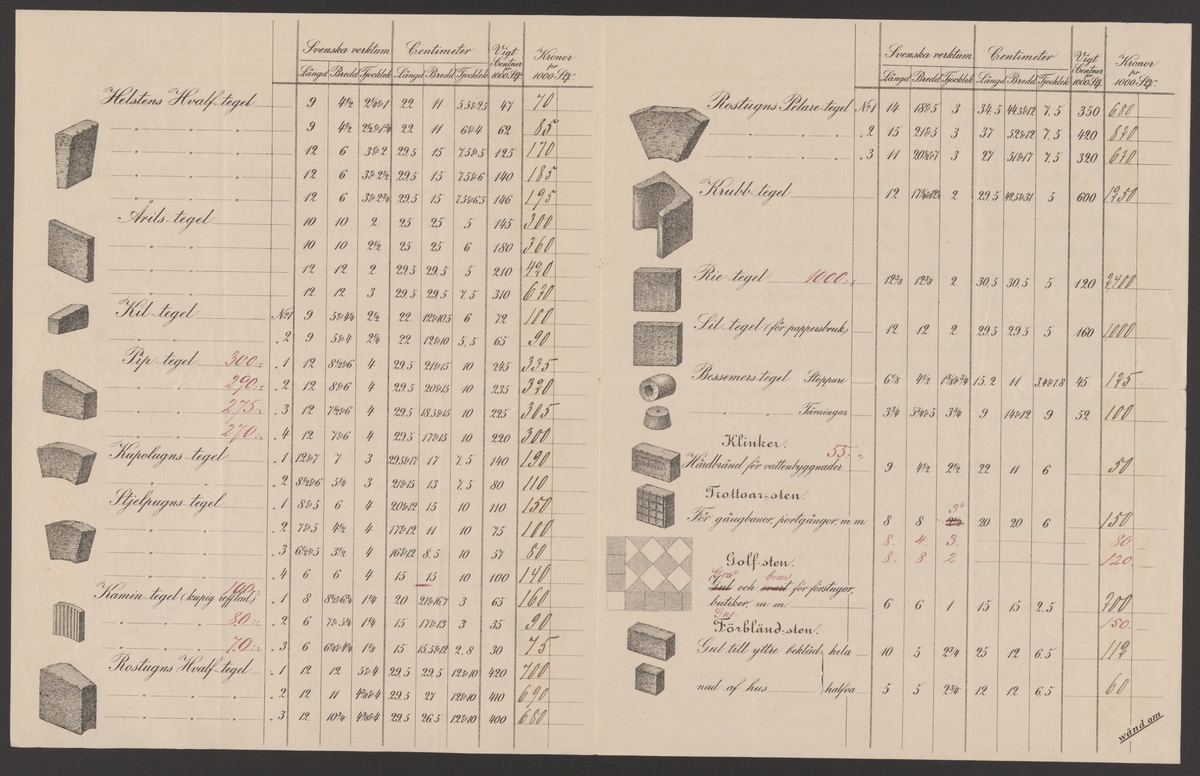 Svenska verktum Centimeter Vigt i Centner pr 1000 St. Kronor pr 1000 St.
Längd Bredd Tjocklek Längd Bredd Tjocklek
Helstens Hvalf-tegel 9 4½ 22 11 47 70
" " 9 4½ 22 11 6&4 62 85
" " 12 6 3&2 29.5 15 7.5&5 125 170
" " 12 6 3&2½ 29.5 15 7.5&6 140 185
" " 12 6 29.5 15 7.5&6.5 146 195
Ärils-tegel 10 10 2 25 25 5 145 300
" " 10 10 2½ 25 25 6 180 360
" " 12 12 2 29.5 29.5 5 210 420
12 12 3 29.5 29.5 7.5 310 630
Kil-tegel No 1 9 2½ 22 12&10.5 6 72 100
" " " 2 9 5&4 22 12&10 5.5 65 90
Pip-tegel 300:- " 1 12 8½&6 4 29.5 21&15 10 245 335
" " 290:- " 2 12 8&6 4 29.5 20&15 10 235 320
" " 275:- " 3 12 7½&6 4 29.5 18.5&15 10 225 305
" " 270:- " 4 12 7&6 4 29.5 17&15 10 220 300
Kupolugns-tegel " 1 12&7 7 3 29.5&17 17 7.5 140 190
" " " 2 8½&6 3 21&15 13 7.5 80 110
Stjelpugns-tegel " 1 8&5 6 4 20&12 15 10 110 150
" " " 2 7&5 4½ 4 17&12 11 10 75 100
" " " 3 6½&5 3½ 4 16&12 8.5 10 57 80
" " " 4 6 6 4 15 15 10 100 140
Kamin-tegel (kupig refflad) 100:- " 1 8 20 21&16.7 3 65 160
" " 80:- " 2 6 15 17&13 3 35 90
" " 70:- " 3 6 15 15.5&12 2.8 30 75
Rostugns Hvalf-tegel " 1 12 12 5&4 29.5 29.5 12&10 420 700
" " " 2 12 11 29.5 27 12&10 410 690
" " " 3 12 10¾ 29.5 26.5 12&10 400 680
Svenska verktum Centimeter Vigt i Centner pr 1000 St. Kronor pr 1000 St.
Längd Bredd Tjocklek Längd Bredd Tjocklek
Rostugns Pelare-tegel No 1 14 18&5 3 34.5 44.5&12 7.5 350 680
" " " 2 15 21&5 3 37 52&12 7.5 420 820
" " " 3 11 20½&7 3 27 51&17 7.5 320 620
Krubb-tegel 12 2 29.5 42.5&31 5 600 1250
Rie-tegel 1000:- 12⅜ 12⅜ 2 30.5 30.5 5 120 2,400
Sil-tegel (för pappersbruk) 12 12 2 29.5 29.5 5 160 1,000
Bessemers-tegel Stoppare 6⅛ 4½ 15.2 11 3.4&1.8 45 125
" " Tärningar 3¾ 5¾&5 3¾ 9 14&12 9 52 100
Klinker. 55:-
Hårdbränd för vattenbyggnader 9 4½ 2½ 22 11 6 50
Trottoar-sten.
3"
För gångbanor, portgångor, m.m. 8 8 2½ 20 20 6 150
8. 4. 3. 80.
8. 8. 2 120.
Golf-sten.
Grå brun
Gul och svart för förstugor,
butiker, m.m. 6 6 1 15 15 2.5 200
150.
Gul.
Förbländ-sten.
Gul till yttre bekläd- hela 10 5 2¾ 25 12 6.5 112
nad af hus halfva 5 5 2¾ 12 12 6.5 60
wänd om